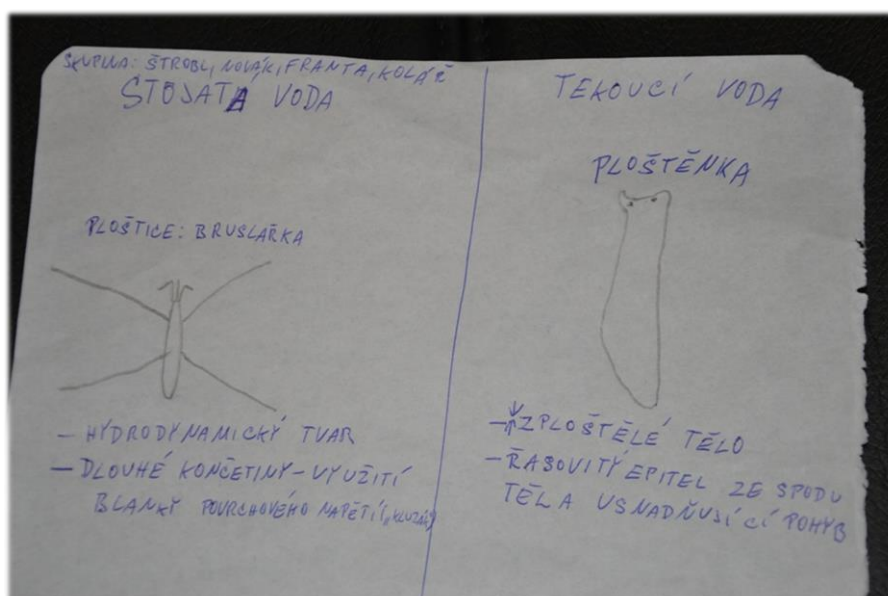 SKUPINA: ŠTROBL, NOVÁK, FRANTA, KOLÁŘ
STOJATÁ VODA
PLOŠTICE: BRUSLAŘKA
- HYDRODYNAMICKÝ TVAR
- DLOUHÉ KONČETINY - VYUŽITÍ
BLANKY POVRCHOVÉHO NAPĚTÍ
TEKOUCÍ VODA
PLOŠTĚNKA
- ZPLOŠTĚLÉ TĚLO
- ŘASOVITÝ EPITEL ZE SPODU
TĚLA USNADŇUJÍCÍ POHYB